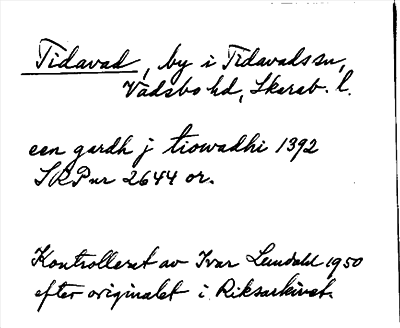 Tidavad, by i Tidavads sn,
Vadsbo hd, Skarab. l.
een gardh j tiowadhi 1392
SRP nr 2644 or.
Kontrollerat av Ivar Lundahl 1950
efter originalet i Riksarkivet.